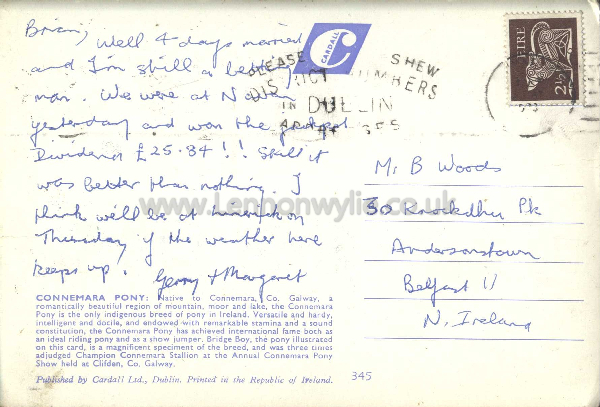 Brian,
Well 4 days married
and I'm still a better
man. We were at Navan
yesterday and won the jackpot
Dividend £25.84!! Still it
was better than nothing. I
think we'll be at Limerick on
Thursday if the weather here
keeps up.
Gerry & Margaret
CONNEMARA PONY: Native to Connemara, Co. Galway, a
romantically beautiful region of mountain, moor and lake, the Connemara
Pony is the only indigenous breed of pony in Ireland. Versatile and hardy,
intelligent and docile, and endowed with remarkable stamina and a sound
constitution, the Connemara Pony has achieved international fame both as
an ideal riding pony and as a show jumper. Bridge Boy, the pony illustrated
on this card, is a magnificent specimen of the breed, and was three times
adjudged Champion Connemara Stallion at the Annual Connemara Pony
Show held at Clifden, Co. Galway.
Published by Cardall Ltd., Dublin. Printed in the Republic of Ireland.
345
CARDALL
PLEASE SHEW
DISTRICT NUMBERS
IN DUBLIN
ADDRESSES
EIRE
2½
Mr B Woods
30 Knockdhu Pk
Andersonstown
Belfast 11
N. Ireland
www.Lennonwylie.co.uk